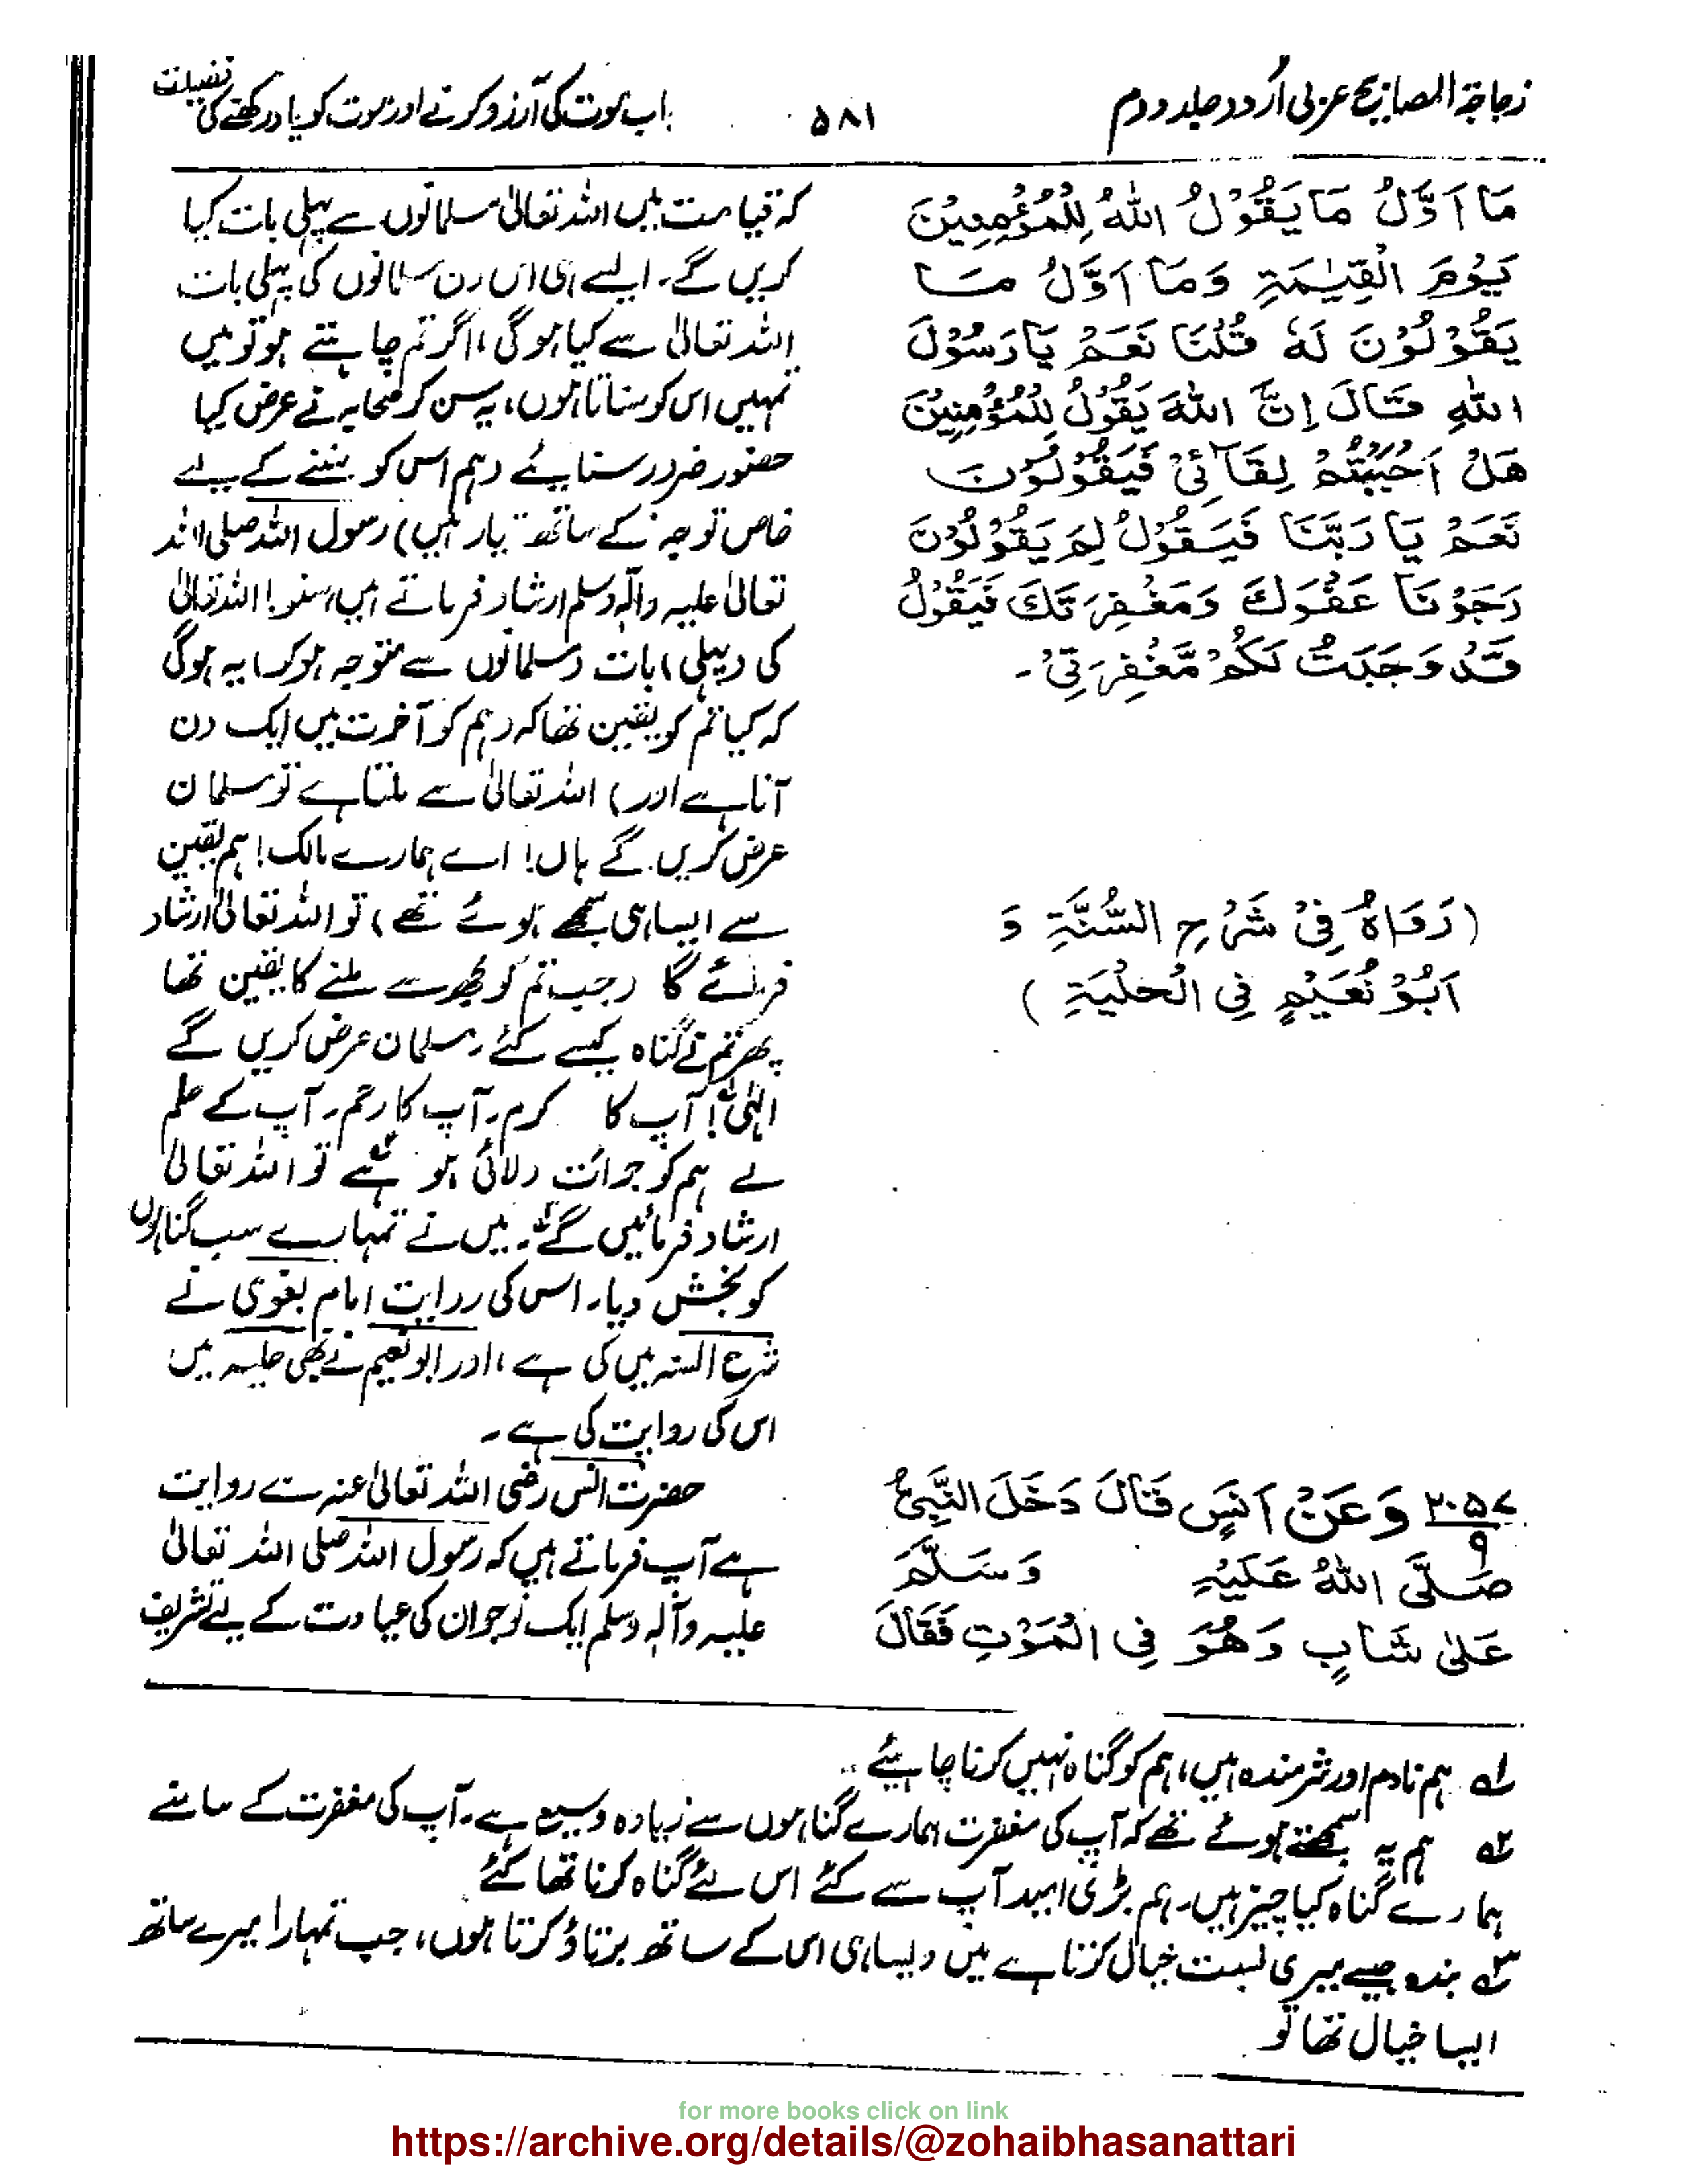 زجاجۃ المصابیح عربی اُردو جلد دوم
۵۸۱
باب موت کی آرزو کرنے اور موت کو یاد رکھنے کی فضیلت
مَا اَوَّلُ مَا يَقُوْلُ اللهُ لِلْمُؤْمِنِيْنَ
يَوْمَ الْقِيٰمَةِ وَمَا اَوَّلُ مَا
يَقُوْلُوْنَ لَهٗ قُلْنَا نَعَمْ يَا رَسُوْلَ
اللهِ قَالَ اِنَّ اللهَ يَقُوْلُ لِلْمُؤْمِنِيْنَ
هَلْ اَحْبَبْتُمْ لِقَآئِيْ فَيَقُوْلُوْنَ
نَعَمْ يَا رَبَّنَا فَيَقُوْلُ لِمَ يَقُوْلُوْنَ
رَجَوْنَا عَفْوَكَ وَمَغْفِرَتَكَ فَيَقُوْلُ
قَدْ وَجَبَتْ لَكُمْ مَّغْفِرَتِيْ۔
(رَوَاهُ فِيْ شَرْحِ السُّنَّةِ وَ
اَبُوْ نُعَيْمٍ فِي الْحِلْيَةِ)
۲۰۵۷/۹ وَعَنْ اَنَسٍ قَالَ دَخَلَ النَّبِيُّ
صَلَّى اللهُ عَلَيْهِ وَسَلَّمَ
عَلىٰ شَابٍ وَهُوَ فِي الْمَوْتِ فَقَالَ
کہ قیامت میں اللہ تعالیٰ مسلمانوں سے پہلی بات کیا
کریں گے۔ ایسے ہی اس دن مسلمانوں کی پہلی بات
اللہ تعالیٰ سے کیا ہوگی، اگر تم چاہتے ہو تو میں
تمہیں اس کو سناتا ہوں، یہ سن کر صحابہ نے عرض کیا
حضور ضرور سنایئے (ہم اس کو سننے کے لیے
خاص توجہ کے ساتھ تیار ہیں) رسول اللہ صلی اللہ
تعالیٰ علیہ وآلہٖ وسلم ارشاد فرماتے ہیں، سنو! اللہ تعالیٰ
کی (پہلی) بات (مسلمانوں سے متوجہ ہو کر) یہ ہوگی
کہ کیا تم کو یقین تھا کہ (ہم کو آخرت میں ایک دن
آنا ہے اور) اللہ تعالیٰ سے ملنا ہے تو مسلمان
عرض کریں گے ہاں! اے ہمارے مالک! ہم یقین
سے ایسا ہی سمجھے ہوئے تھے) تو اللہ تعالیٰ ارشاد
فرمائے گا (جب تم کو مجھ سے ملنے کا یقین تھا
پھر تم نے گناہ کیسے کئے۔ مسلمان عرض کریں گے
الٰہی! آپ کا کرم، آپ کا رحم، آپ کے حلم
نے ہم کو جرأت دلائی ہوئی ہے تو اللہ تعالیٰ
ارشاد فرمائیں گے، میں نے تمہارے سب گناہوں
کو بخش دیا۔ اس کی روایت امام بغوی نے
شرح السنہ میں کی ہے، اور ابو نعیم نے بھی حلیہ میں
اس کی روایت کی ہے۔
حضرت انس رضی اللہ تعالیٰ عنہ سے روایت
ہے آپ فرماتے ہیں کہ رسول اللہ صلی اللہ تعالیٰ
علیہ وآلہ وسلم ایک نوجوان کی عیادت کے لیے تشریف
لہ ہم نادم اور شرمندہ ہیں، ہم کو گناہ نہیں کرنا چاہیئے۔
۲ہ ہم یہ سمجھتے ہوئے تھے کہ آپ کی مغفرت ہمارے گناہوں سے زیادہ وسیع ہے۔ آپ کی مغفرت کے سامنے
ہمارے گناہ کیا چیز ہیں، ہم بڑی امید آپ سے کئے اس لئے گناہ کرنا تھا کئے
۳ہ بندہ جیسے میری نسبت خیال کرتا ہے میں ویسا ہی اس کے ساتھ برتاؤ کرتا ہوں، جب تمہارا میرے ساتھ
ایسا خیال تھا تو
for more books click on link
https://archive.org/details/@zohaibhasanattari